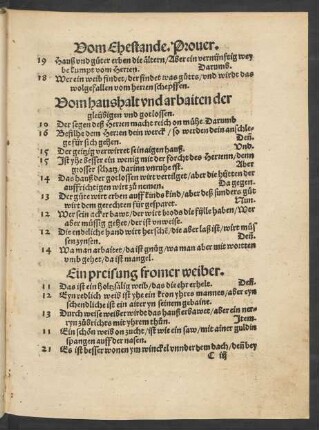 Vom Ehestande. Prouer.
19 Hauß vnd güter erben die ältern / Aber ein vernünfftig wey
be kumpt vom Herren. Darumb.
18 Wer ein weib findet, der findet was gütts / vnd wirdt das
wolgefallen vom herren schepffen.
Vom haußhalt vnd arbaiten der
gleübigen vnd gotlossen.
10 Der segen deß Herren macht reich on mühe. Darumb
16 Befilhe dem Herren dein werck / so werden dein anschle-
ge für sich gehen. Deñ.
15 Der geitzig verwirret sein aigen hauß. Vnd.
15 Ist yhe besser ein wenig mit der forcht des Herrenn, denn
grosser schatz / darinn vnruhe ist. Aber
14 Das hauß der gotlossen wirt vertilget / aber die hütten der
auffrichtigen wirt zü nemen. Da gegen.
13 Der güte wirt erben auff kinds kind / aber deß sünders güt
wirt dem gerechten für gesparet. Nun.
12 Wer sein acker bawt / der wirt brods die fülle haben / Wer
aber müssig gehet / der ist vnweise.
12 Die endliche hand wirt herschẽ, die aber laß ist / wirt müs
sen zynsen. Deñ.
14 Wa man arbaitet / da ist gnüg / wa man aber mit wortten
vmb gehet / da ist mangel.
Ein preisung fromer weiber.
11 Das ist ein holtsälig weib / das die ehr erhelt. Deñ.
12 Eyn redlich weib ist yhe ein kron yhres mannes / aber eyn
schendtliche ist ein aiter yn seinem gebaine.
13 Durch weise weiber wirdt das hauß erbawet / aber ein ner-
ryn zübrichts mit yhrem thün. Item.
11 Ein schön weib on zucht / ist wie ein saw / mit ainer guldin
spangen auff der nasen.
21 Es ist besser wonen ym winckel vnnder dem dach / deñ bey
C iij